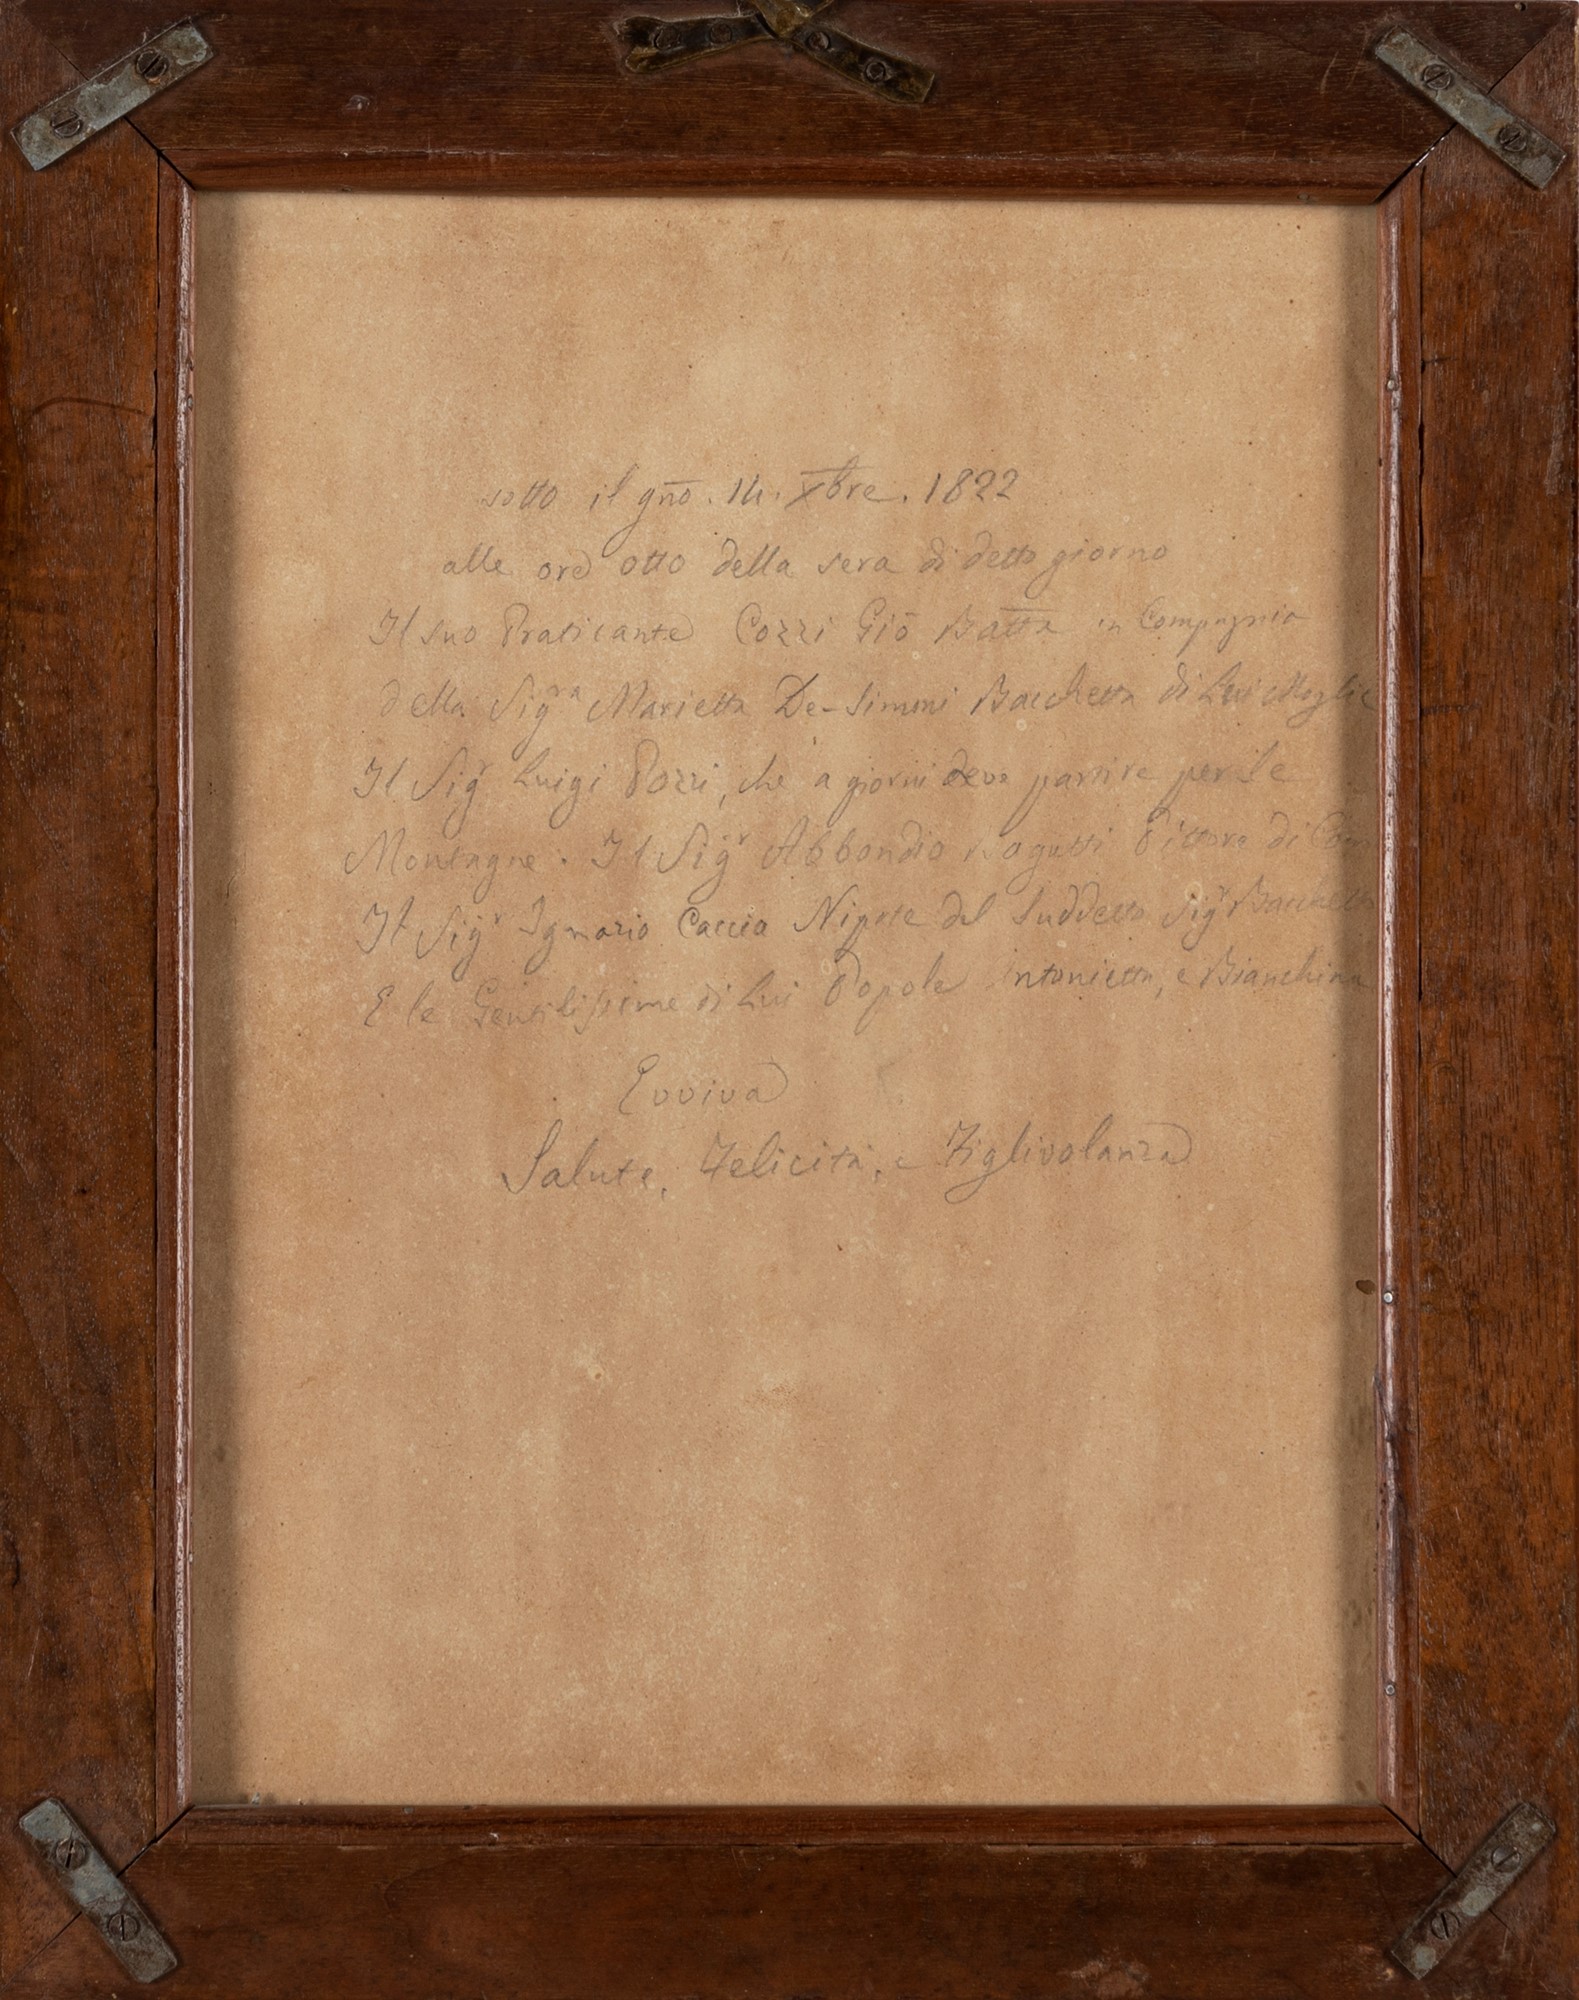 sotto il gño. 14. Xbre. 1822
alle ore otto della sera di detto giorno
Il suo Praticante Cozzi Giõ Batta in Compagnia
della Sigra Marietta De-Simoni Bacchetta di Lui Moglie
Il Sigr Luigi Pozzi, che a giorni deve partire per le
Montagne. Il Sigr Abbondio Bagutti Pittore di Com
Il Sigr Ignazio Caccia Nipote del Suddetto Sigr Bacchetta
E le Gentilissime di Lui Popole Antonietta, e Bianchina
Evviva
Salute, Felicità, e Figlivolanza